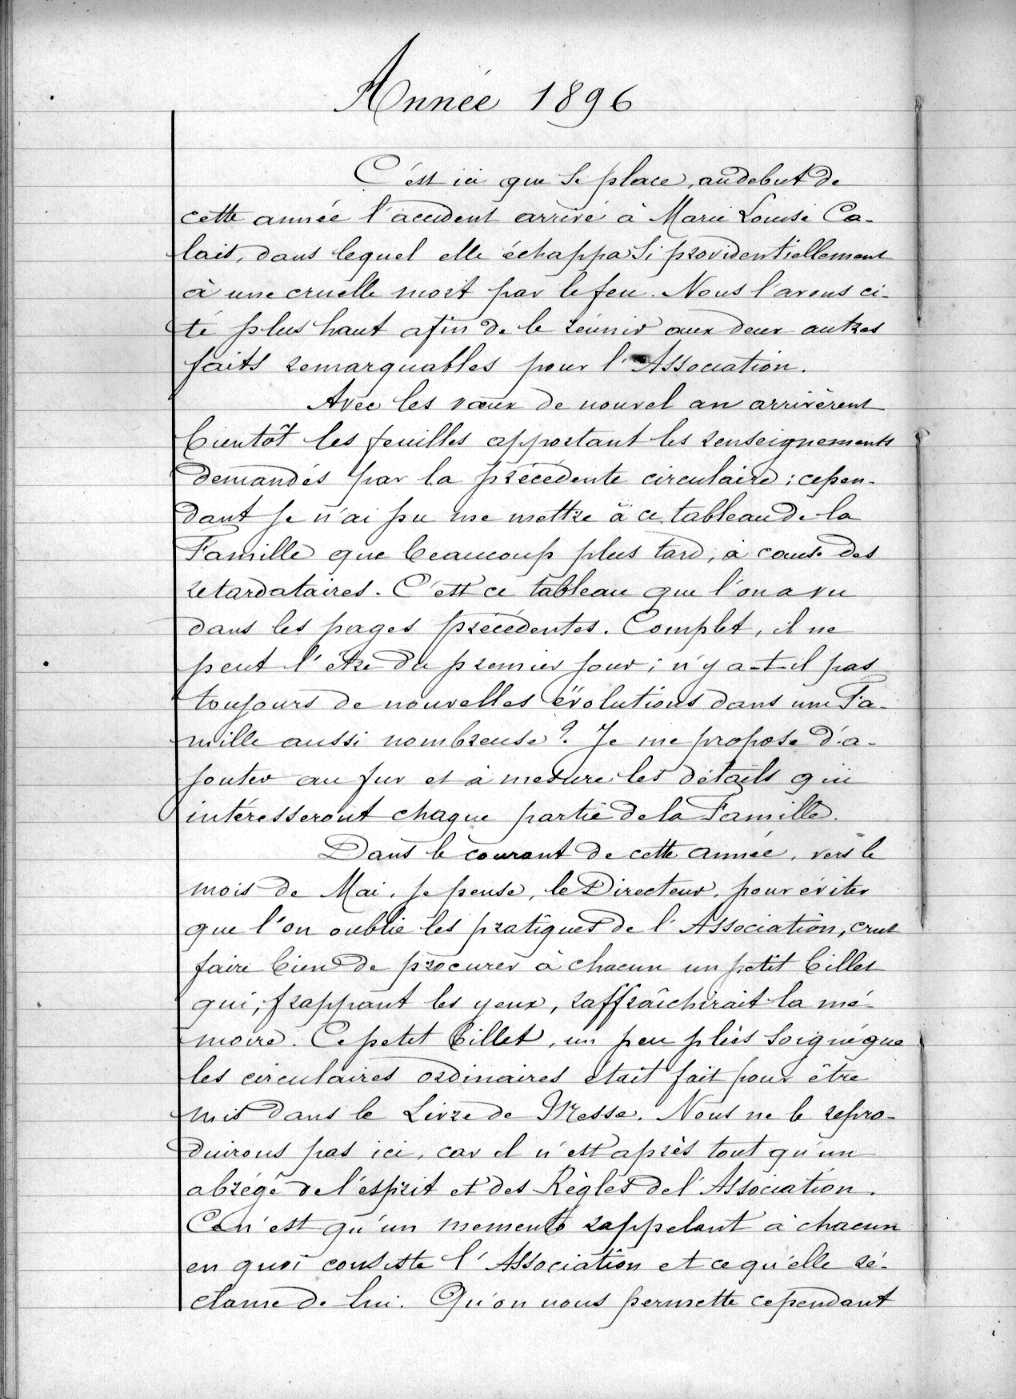 Année 1896
C'est ici que se place, au debut de
cette année l'accident arrivé à Marie Louise Ca-
lais, dans lequel elle échappa si providentiellement
à une cruelle mort par le feu. Nous l'avons ci-
té plus haut afin de le réunir aux deux autres
faits remarquables pour l'Association.
Avec les vœux de nouvel an arrivèrent
bientôt les feuilles apportant les renseignements
demandés par la précédente circulaire ; cepen-
dant je n'ai pu me mettre à ce tableau de la
Famille que beaucoup plus tard, à cause des
retardataires. C'est ce tableau que l'on a vu
dans les pages précédentes. Complet, il ne
peut l'être du premier jour ; n'y a-t-il pas
toujours de nouvelles évolutions dans une Fa-
mille aussi nombreuse ? Je me propose d'a-
jouter au fur et à mesure les détails qui
intéresseront chaque partie de la Famille.
Dans le courant de cette année, vers le
mois de Mai, je pense, le Directeur, pour éviter
que l'on oublie les pratiques de l'Association, crut
faire bien de procurer à chacun un petit billet
qui, frappant les yeux, raffraîchirait la mé-
moire. Ce petit billet, un peu plus soigné que
les circulaires ordinaires était fait pour être
mis dans le Livre de Messe. Nous ne le repro-
duirons pas ici, car il n'est après tout qu'un
abrégé de l'esprit et des Règles de l'Association.
Ce n'est qu'un memento rappelant à chacun
en quoi consiste l'Association et ce qu'elle ré-
clame de lui. Qu'on nous permette cependant